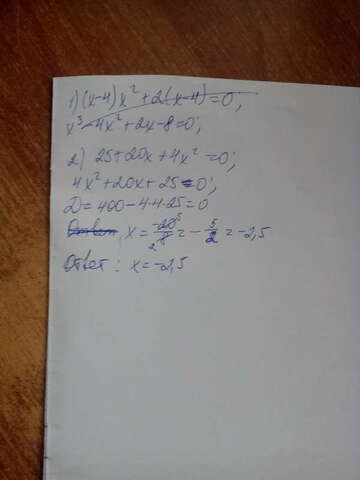 1) (x-4)x² + 2(x-4) = 0;
x³ - 4x² + 2x - 8 = 0;
2) 25 + 20x + 4x² = 0;
4x² + 20x + 25 = 0;
D = 400 - 4·4·25 = 0
Ответ x = -20⁵/8₂ = -5/2 = -2,5
Ответ: x = -2,5